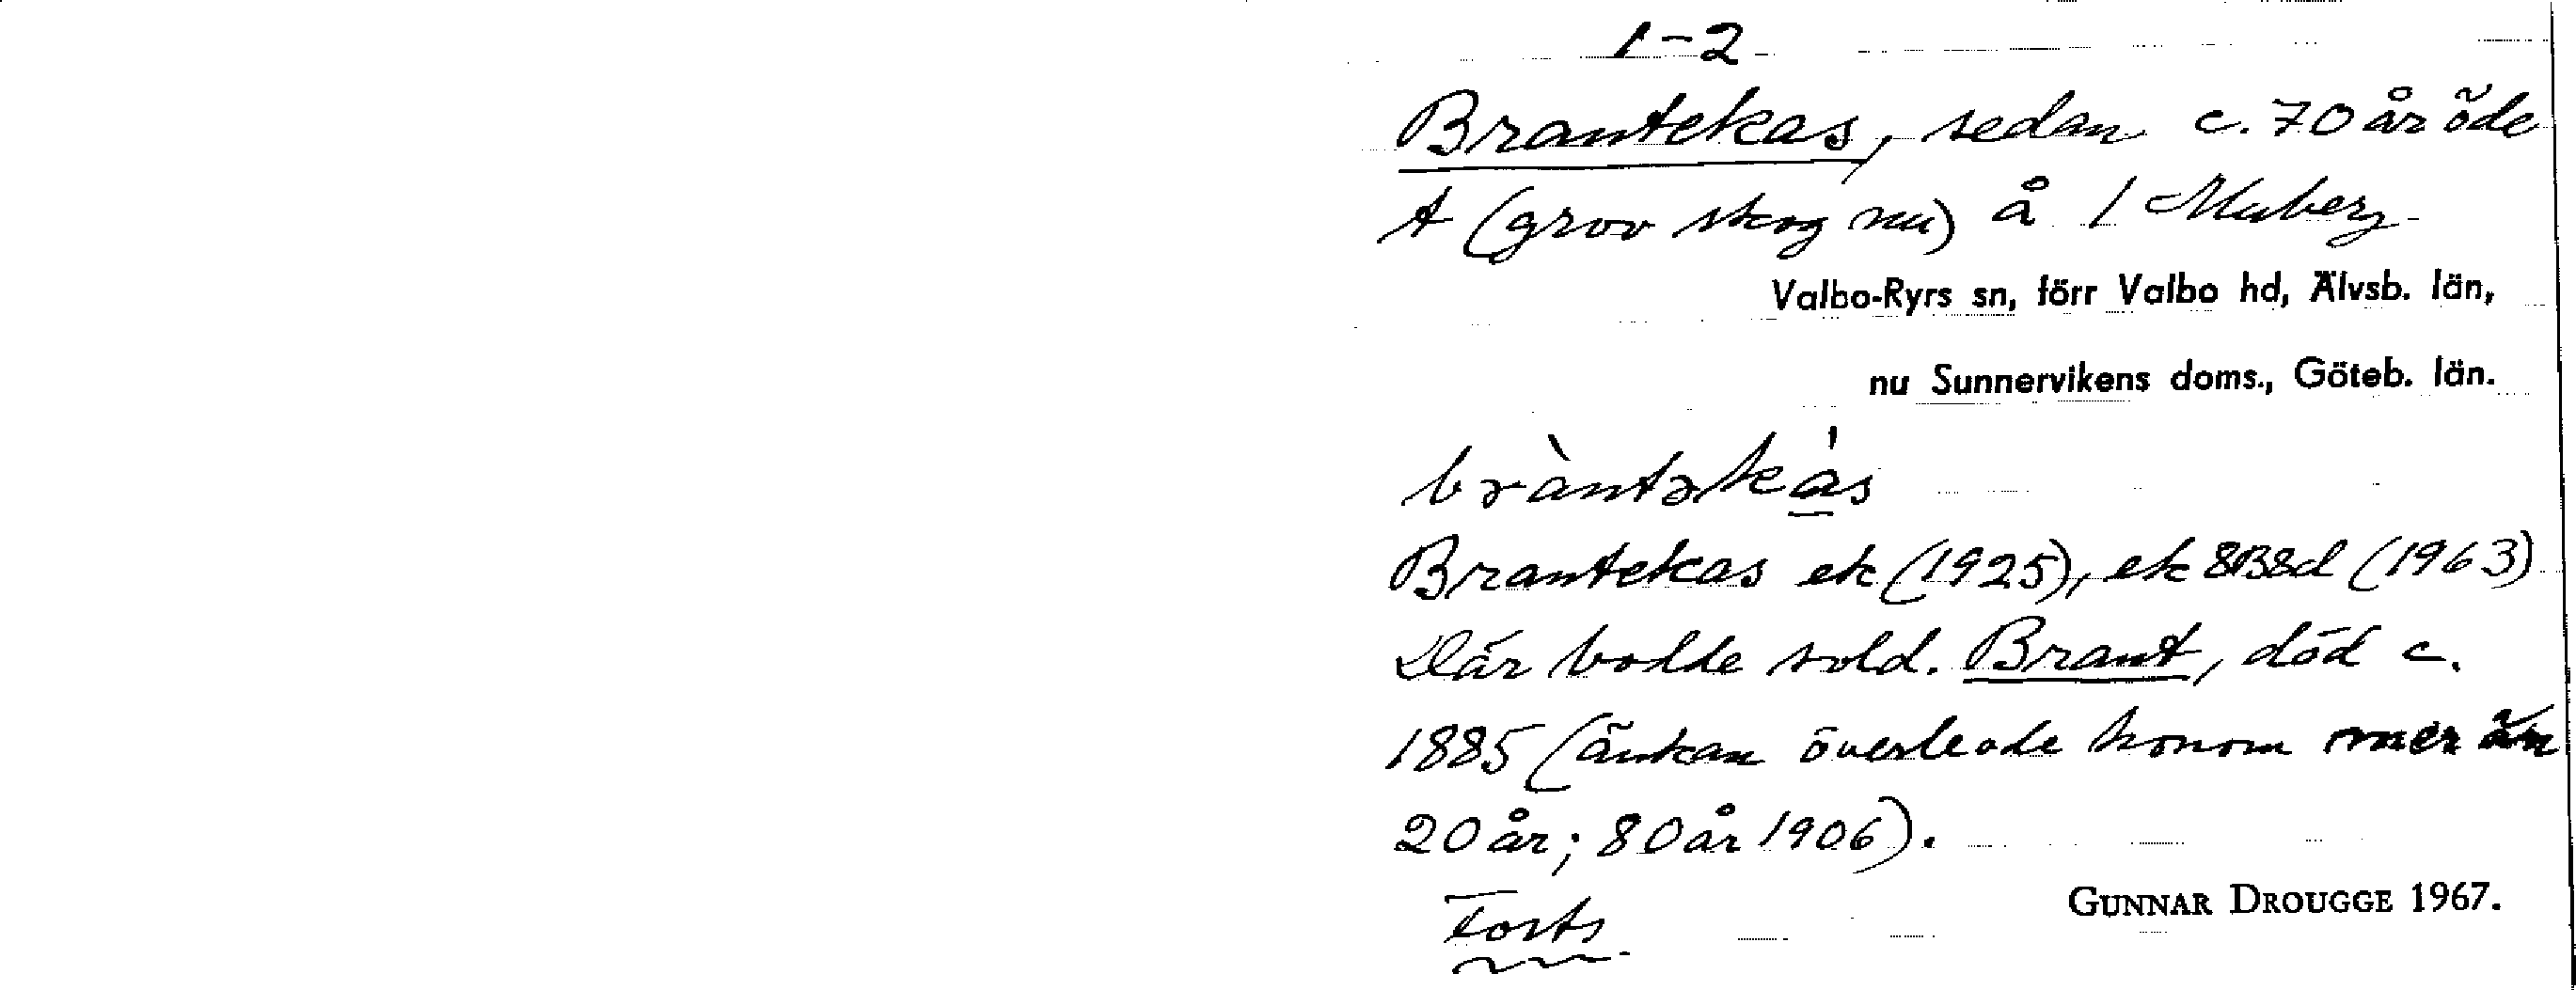 1-2
Brantekas, sedan c. 70 år öde
t (grov skog nu) å 1 Muberg
Valbo-Ryrs sn, förr Valbo hd, Älvsb. län,
nu Sunnervikens doms., Göteb. län.
bràntəkàs
Brantekas ek (1925), ek 8B8d (1963)
Där bodde sold. Brant, död c.
1885 (änkan överlevde honom mer än
20 år; 80 år 1906).
Forts
GUNNAR DROUGGE 1967.